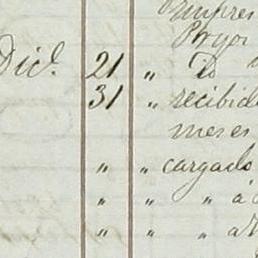 Pryor
Dic.e 21 " Id
31 " recibid
meses
" " cargado
" " " á
" " " á